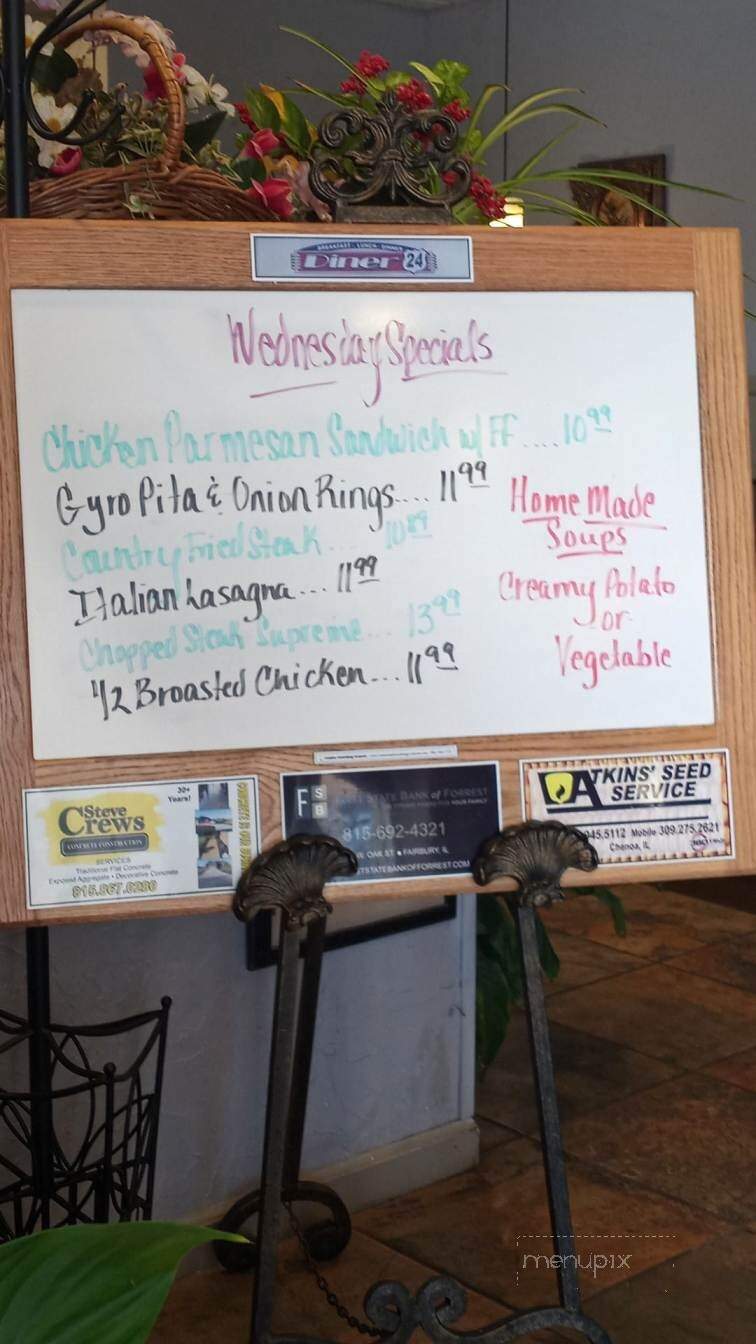 BREAKFAST · LUNCH · DINNER
Diner 24
Wednesday Specials
Chicken Parmesan Sandwich w/ FF .... 10 99
Gyro Pita & Onion Rings.... 11 99
Country Fried Steak ... 10 89
Italian Lasagna... 11 99
Chopped Steak Supreme... 13 99
1/2 Broasted Chicken... 11 99
Home Made
Soups
Creamy Potato
or
Vegetable
Steve
Crews
CONCRETE CONSTRUCTION
30+
Years!
SERVICES
Traditional Flat Concrete
Exposed Aggregate • Decorative Concrete
815.867.0280
FSB
STATE BANK of FORREST
YOUR FAMILY
815-692-4321
OAK ST ■ FAIRBURY, IL
TSTATEBANKOFFORREST.COM
ATKINS' SEED
SERVICE
945.5112 Mobile 309.275.2621
Chenoa, IL
menupix